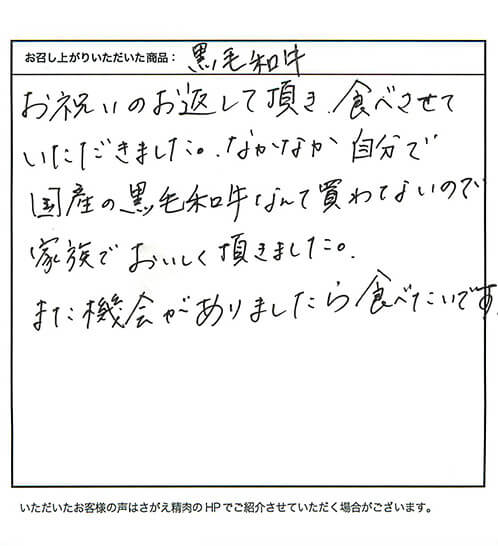 お召し上がりいただいた商品： 黒毛和牛
お祝いのお返しで頂き、食べさせて
いただきました。なかなか自分で
国産の黒毛和牛なんて買わてないので
家族でおいしく頂きました。
また機会がありましたら食べたいです。
いただいたお客様の声はさがえ精肉のHPでご紹介させていただく場合がございます。